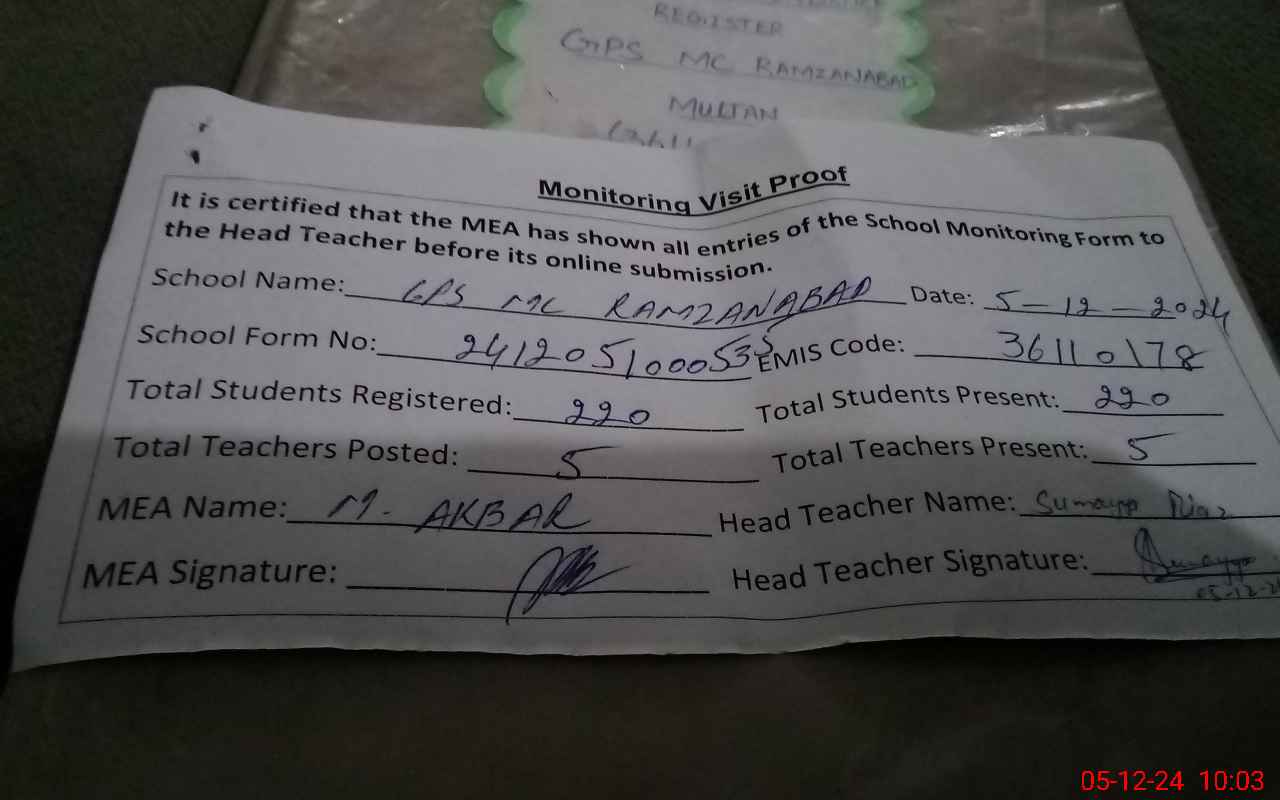 REGISTER
GPS MC RAMZANABAD
MULTAN
Monitoring Visit Proof
It is certified that the MEA has shown all entries of the School Monitoring Form to
the Head Teacher before its online submission.
School Name: GPS MC RAMZANABAD Date: 5-12-2024
School Form No: 2412051000535 EMIS Code: 36110178
Total Students Registered: 220 Total Students Present: 220
Total Teachers Posted: 5 Total Teachers Present: 5
MEA Name: M. AKBAR Head Teacher Name: Sumayya
MEA Signature: Head Teacher Signature: Sumayya
05-12-2
05-12-24 10:03